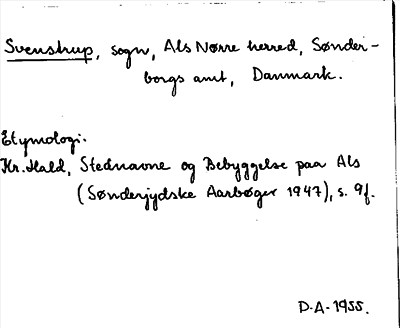 Svenstrup, sogn, Als Nørre herred, Sønder-
borgs amt, Danmark.
Etymologi.
Kr. Hald, Stednavne og Bebyggelse paa Als
(Sønderjydske Aarbøger 1947), s. 9f.
D.A. 1955.